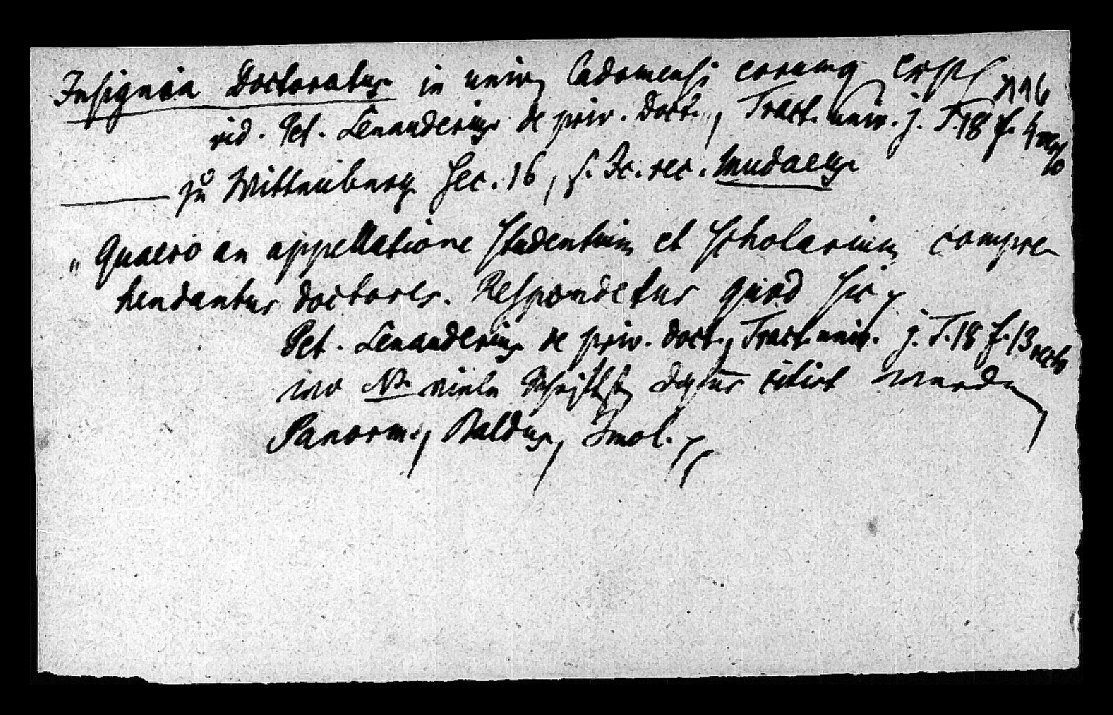 Insignia Doctoratus in univ. Cadomensi eorumq
vid. Pet. Lenauderius de priv. doct., Tract. univ. j. T. 18 f. 4
— zu Wittenberg Sec. 16, s. rec. Mudaeus
„Quaero an appellatione studentium et scholarium compre-
hendantur doctores. Respondetur quod sic
Pet. Lenauderius de priv. doct., Tract. univ. j. T. 18 f. 13
wo NB. viele citirt werden,
Panorm., Baldus, Imol.